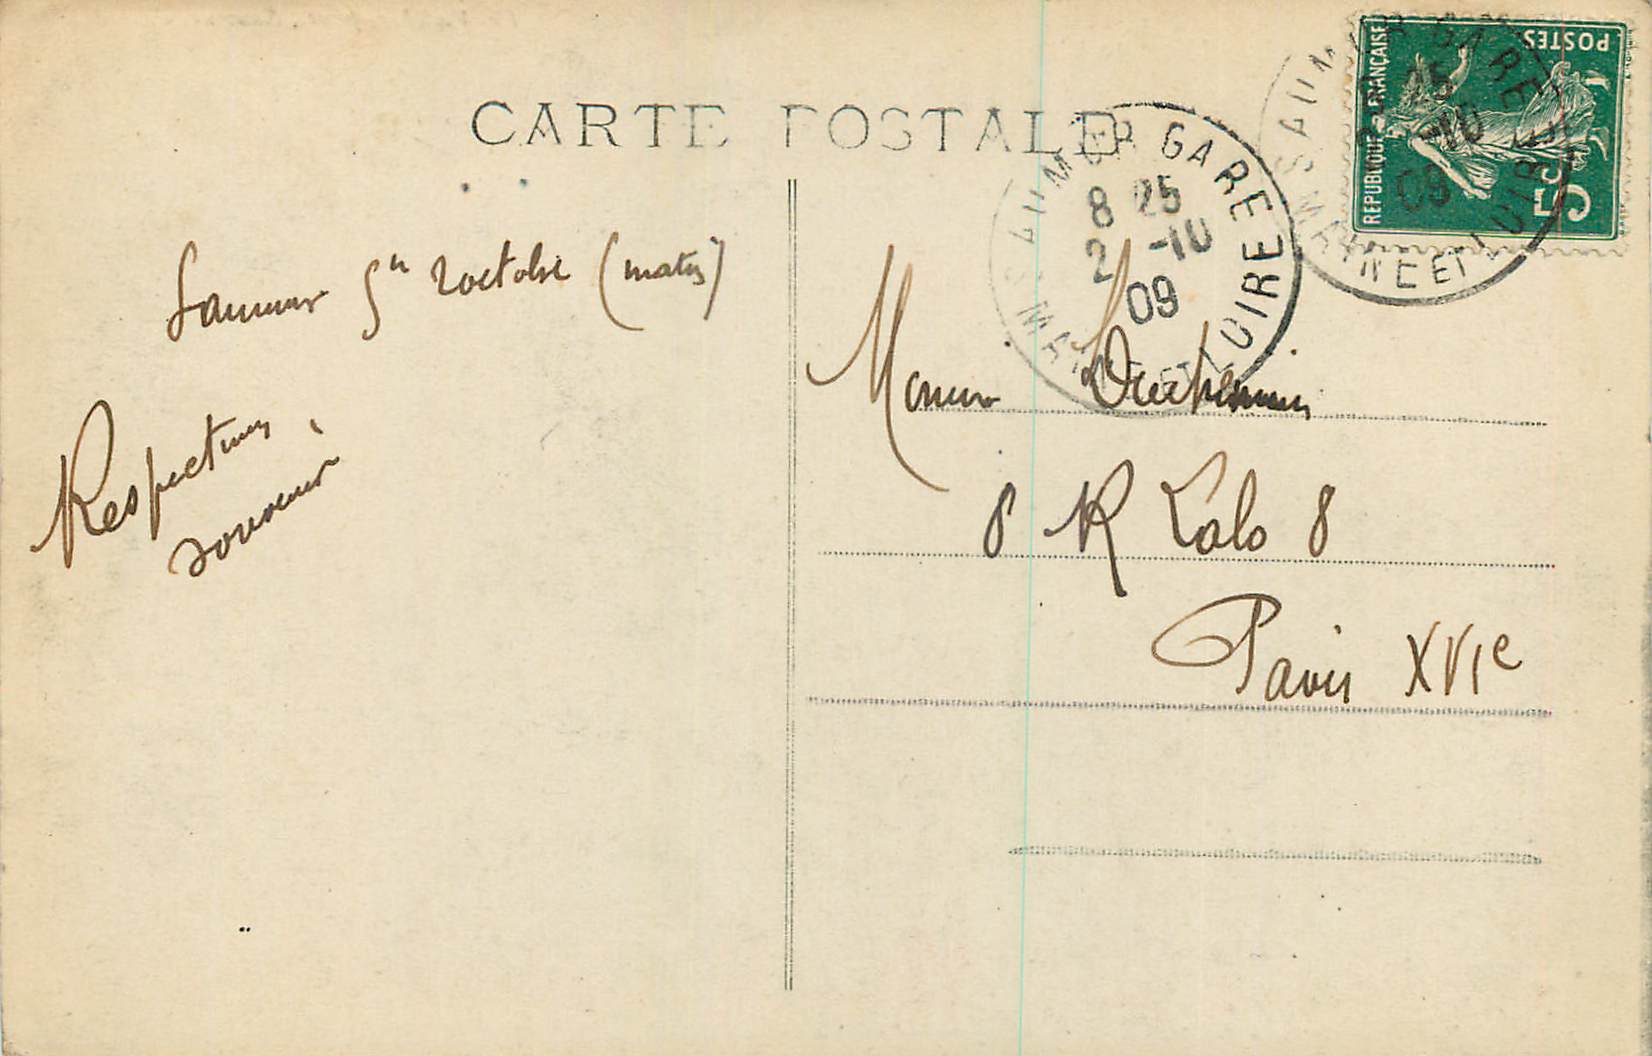 CARTE POSTALE
RÉPUBLIQUE FRANÇAISE
POSTES
5c
SAUMUR GARE
8 25
2 -10
09
MAINE ET LOIRE
SAUMUR GARE
25
-10
09
MAINE ET LOIRE
Saumur 2 octobre (matin)
Respectueux
souvenir
Monsieur
8 R Lalo 8
Paris XVIe